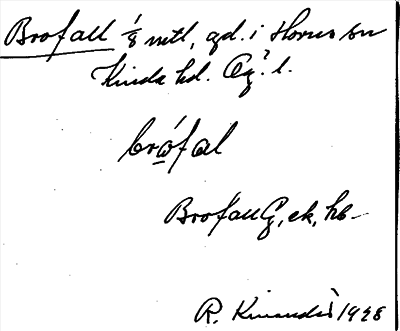 Brofall 1/8 mtl, gd. i Horns sn
Kinda hd. Ög. l.
brófal
Brofall G, ek, hb
R. 1928